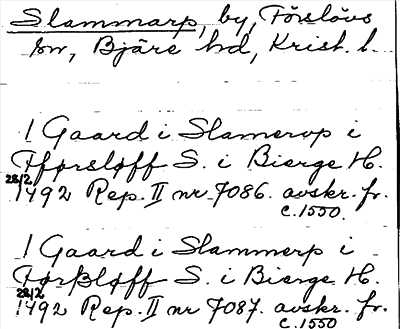 Slammarp, by, Förslövs
sn, Bjäre hd, Krist. l.
1 Gaard i Slamerop i
Fførsløff S. i Bierge H.
28/2
1492 Rep. II nr 7086. avskr. fr.
c. 1550.
1 Gaard i Slammerp i
Førßløff S. i Bierge H.
28/2
1492 Rep. II nr 7087. avskr. fr.
c. 1550